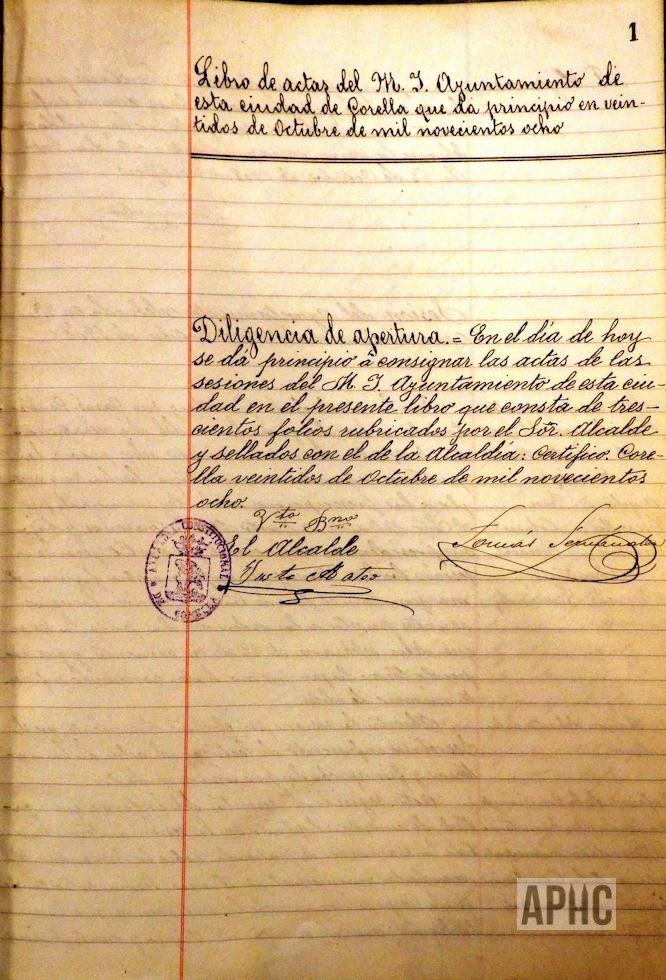 1
Libro de actas del M. I. Ayuntamiento de
esta ciudad de Corella que dá principio en vein-
tidos de Octubre de mil novecientos ocho
Diligencia de apertura.= En el día de hoy
se dá principio á consignar las actas de las
sesiones del M. I. Ayuntamiento de esta ciu-
dad en el presente libro que consta de tres-
cientos folios rubricados por el Sör. Alcalde
y sellados con el de la Alcaldía: Certifico. Core-
lla veintidos de Octubre de mil novecientos
ocho.
Vto Bno
El Alcalde
Tomás
ALCALDIA CONSTITUCIONAL DE CORELLA
APHC